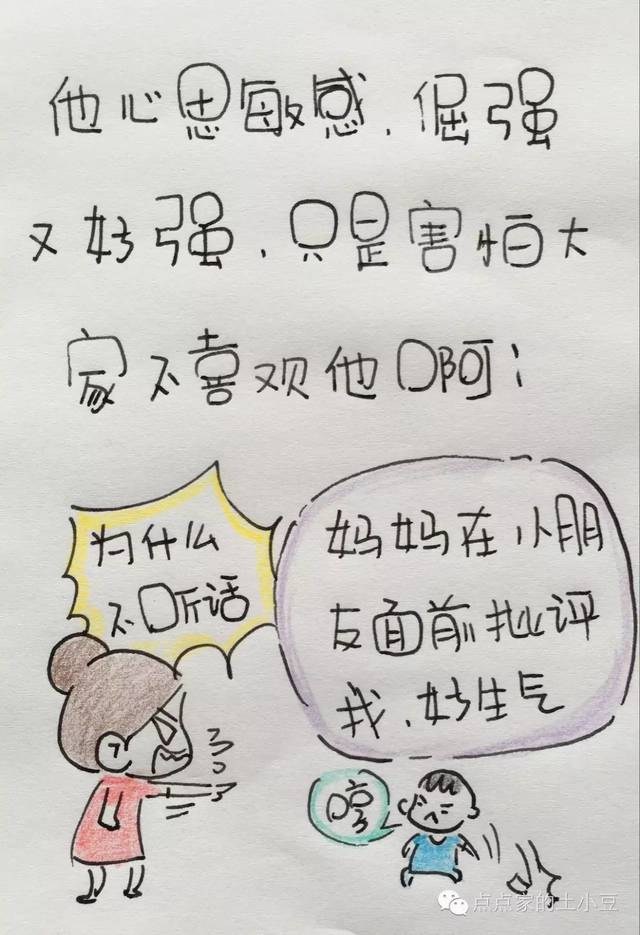 他心思敏感，倔强
又好强，只是害怕大
家不喜欢他啊；
为什么
不听话
妈妈在小朋
友面前批评
我，好生气
哼
点点家的土小豆